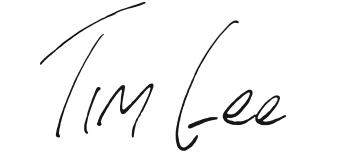 Tim Lee